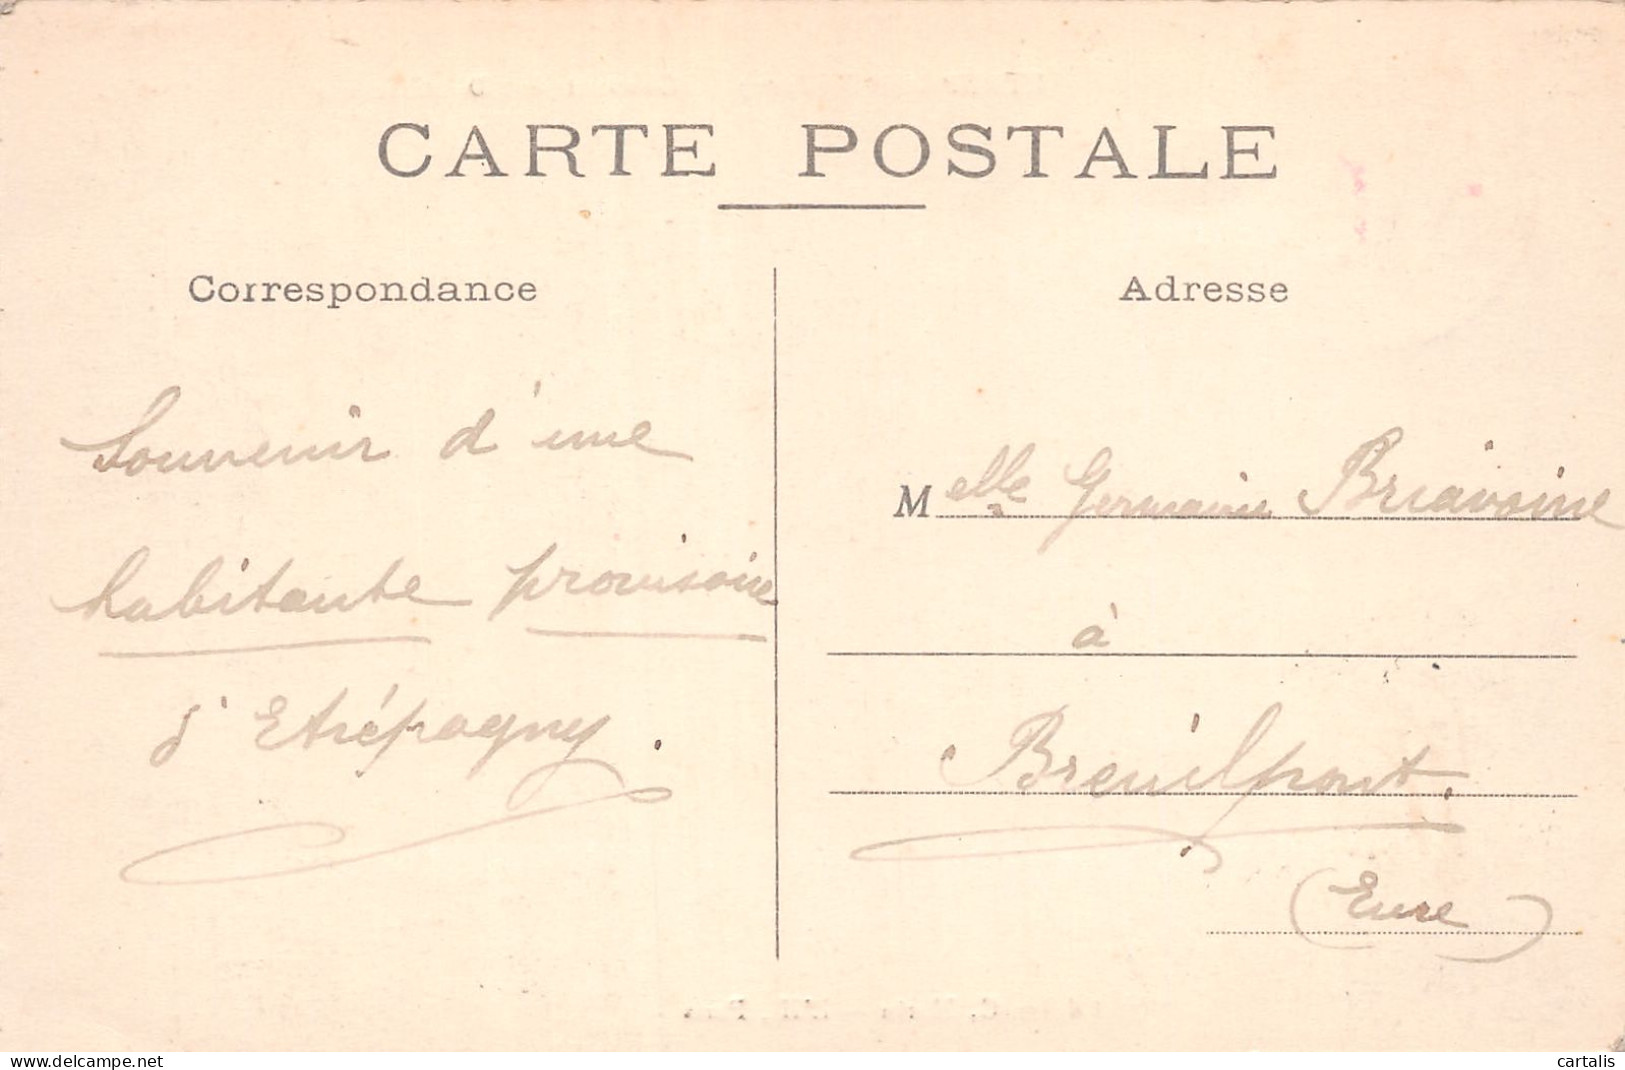 CARTE POSTALE
Correspondance
Souvenir d'une
habitante provisoire
d'Etrépagny.
Adresse
Melle Germaine Briavoine
à
Breuilpont.
(Eure)
www.delcampe.net
cartalis